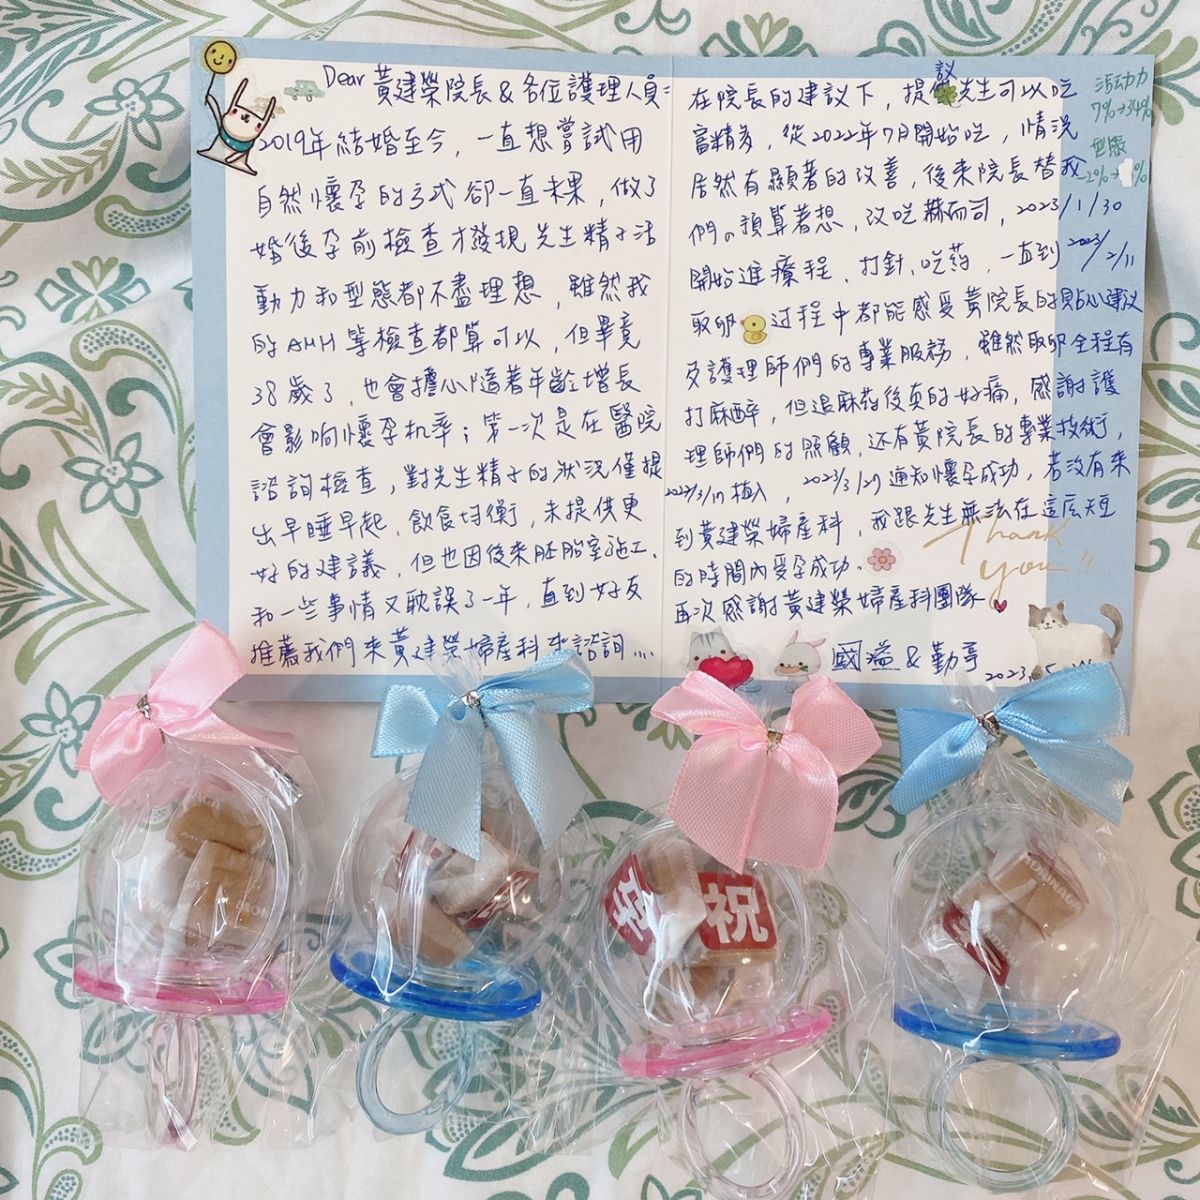 Dear 黃建榮院長 & 各位護理人員：
2019年結婚至今，一直想嘗試用
自然懷孕的方式卻一直未果，做了
婚後孕前檢查才發現先生精子活
動力和型態都不盡理想，雖然我
的AMH等檢查都算可以，但畢竟
38歲了，也會擔心隨著年齡增長
會影响懷孕机率；第一次是在醫院
諮詢檢查，對先生精子的狀況僅提
出早睡早起、飲食均衡，未提供更
好的建議，但也因後來胚胎室施工、
和一些事情又耽誤了一年，直到好友
推薦我們來黃建榮婦產科來諮詢...
在院長的建議下，提議先生可以吃
富精多，從2022年7月開始吃，情況
居然有顯著的改善，後來院長替我
們的預算著想，改吃蘇而司，2023/1/30
開始進療程，打針、吃葯，一直到2023/2/11
取卵 过程中都能感受黃院長的貼心建议
及護理師們的專業服務，雖然取卵全程有
打麻醉，但退麻葯後真的好痛，感謝護
理師們的照顧，还有黃院長的專業技術，
2023/3/17植入，2023/3/27通知懷孕成功，若沒有來
到黃建榮婦產科，我跟先生無法在這広短
的時間內受孕成功。
再次感謝黃建榮婦產科團隊
國溢 & 勤
2023.5
活動力
7%→34%
型態
Thank
You!!
祝